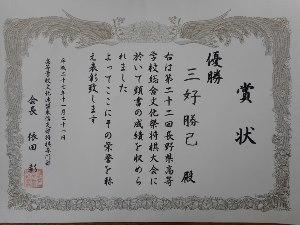 賞状
優勝
三好勝己殿
右は第二十二回長野県高等
学校総合文化祭将棋大会に
於いて頭書の成績を収めら
れました
よってここにその栄誉を称
え表彰致します
平成二十七年十一月二十一日
高等学校文化連盟
会長 依田 彰